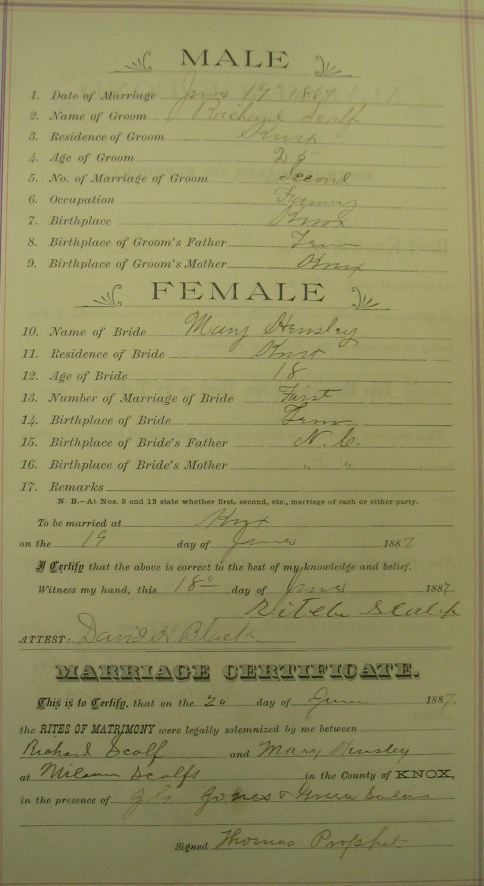 MALE
1. Date of Marriage June 19 1887
2. Name of Groom Richard Scalf
3. Residence of Groom Knox
4. Age of Groom 25
5. No. of Marriage of Groom Second
6. Occupation Farming
7. Birthplace Knox
8. Birthplace of Groom's Father Tenn
9. Birthplace of Groom's Mother Knx
FEMALE
10. Name of Bride Mary Hensley
11. Residence of Bride Knox
12. Age of Bride 18
13. Number of Marriage of Bride First
14. Birthplace of Bride Tenn
15. Birthplace of Bride's Father N. C.
16. Birthplace of Bride's Mother " "
17. Remarks
N. B.—At Nos. 5 and 13 state whether first, second, etc., marriage of each or either party.
To be married at Knx
on the 19 day of June 1887
I Certify that the above is correct to the best of my knowledge and belief.
Witness my hand, this 18 day of June 1887
Scalf
ATTEST: David H Black
MARRIAGE CERTIFICATE.
This is to Certify, that on the 20 day of June 1887
the RITES OF MATRIMONY were legally solemnized by me between
Richard Scalf and Mary Hensley
at Scalfs in the County of KNOX,
in the presence of Jones &
Signed Thomas Prophit